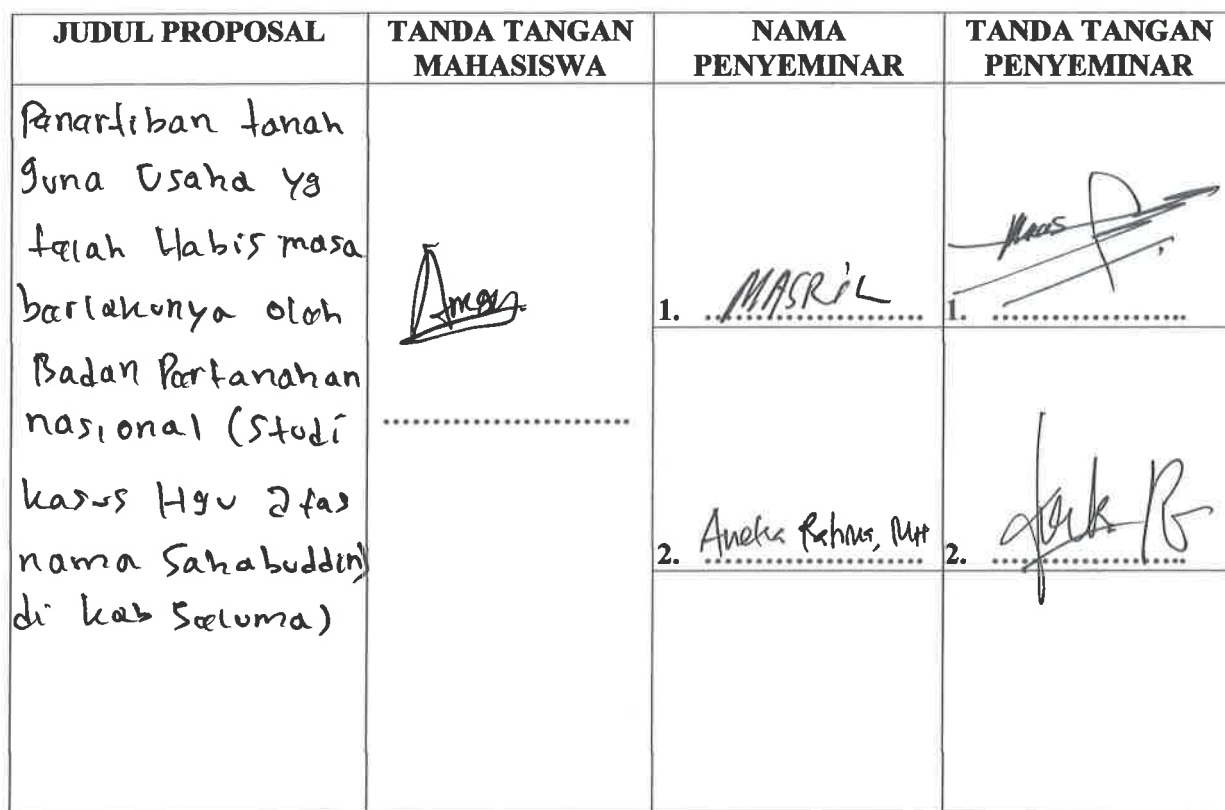 JUDUL PROPOSAL
TANDA TANGAN
MAHASISWA
NAMA
PENYEMINAR
TANDA TANGAN
PENYEMINAR
Penertiban tanah
guna Usaha yg
telah Habis masa
berlakunya oleh
Badan Pertanahan
nasional (Studi
kasus Hgu atas
nama Sahabuddin)
di kab Seluma)
1. MASRIL
1.
2. Aneka Rahma, MH
2.